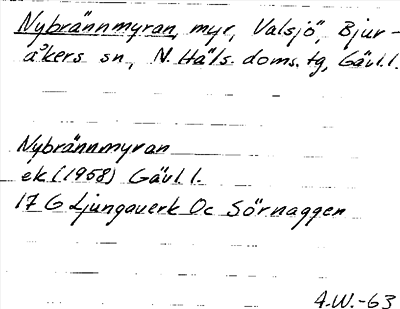 Nybrännmyran, myr, Valsjö Bjur-
åkers sn., N. Häls. doms. tg, Gävl.l.
Nybrännmyran
ek (1958) Gävl.l.
17 G Ljungaverk Oc Sörnaggen
A.W.-63